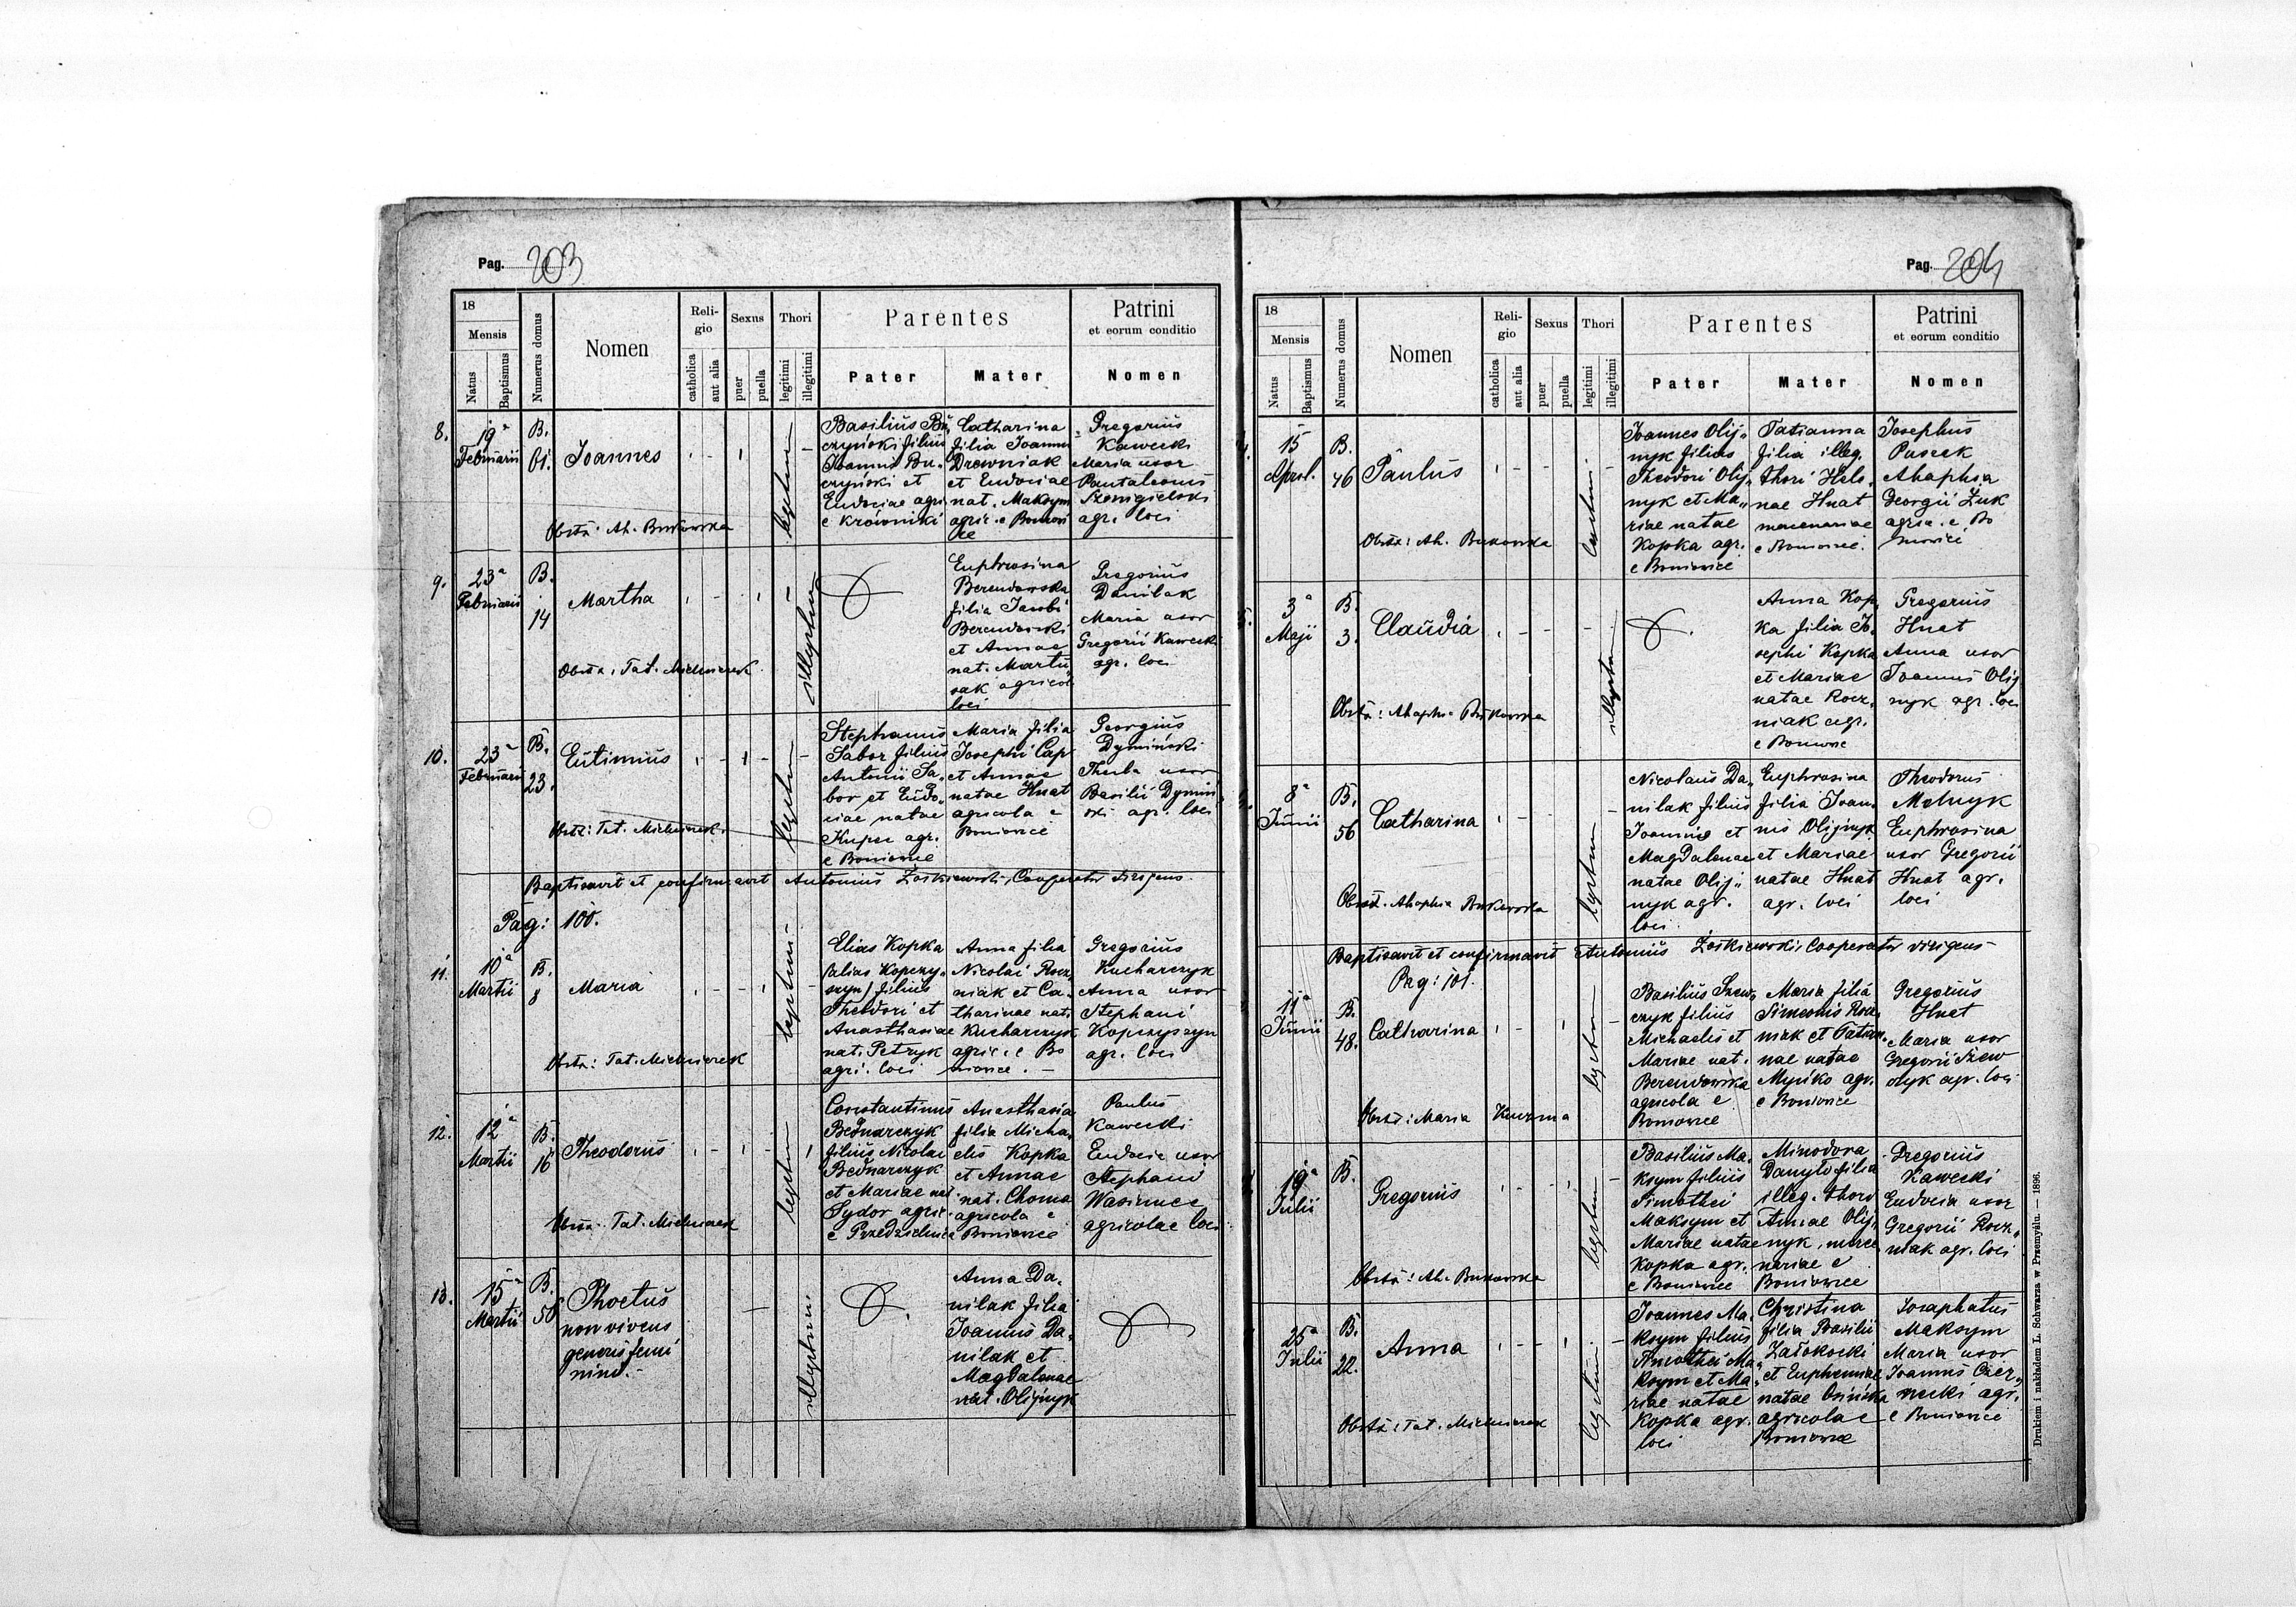 Pag. 203
18
Mensis
Natus
Baptismus
Numerus domus
Nomen
Religio
catholica
aut alia
Sexus
puer
puella
Thori
legitimi
illegitimi
Parentes
Pater
Mater
Patrini
et eorum conditio
Nomen
8.
19a
Februarii
B.
61.
Joannes
Obstx: Ah. Bukowska
Basilius Bu„
czyński filius
Joannis Bu„
czyński et
Eudociae agri.
e Krówniki
Catharina
filia Joannis
Drewniak
et Eudociae
nat. Maksym
agric. e Boniowi
ce
Gregorius
Kawecki
Maria uxor
Pantaleonis
agr. loci
9.
23a
Februarii
B.
14
Martha
Obstx: Tat. Michnierek
Euphrosina
Berendowska
filia Jacobi
Berendowski
et Annae
nat. Martu
sak agricol
loci
Gregorius
Danilak
Maria uxor
Gregorii Kawecki
agr. loci
10.
23a
Februarii
B.
23.
Eutimius
Obstx: Tat. Michnierek
Stephanus
Sabor filius
Antonii Sa„
bor et Eudo„
ciae natae
Kuper agr.
e Boniowice
Maria filia
Josephi Cap
et Annae
natae Hnat
agricola e
Boniowice
Georgius
Dymiński
Thecla uxor
Basilii Dymiń
ski agr. loci
Baptisavit et confirmavit Antonius Żoskiewski, Cooperator dirigens.
Pag: 100.
11.
10a
Martii
B.
8
Maria
Obstx: Tat. Michnierek
Elias Kopka
(alias Kopczy„
szyn) filius
Theodori et
Anasthasiae
nat. Petryk
agri. loci
Anna filia
Nicolai Rocz„
niak et Ca„
tharinae nat.
Kucharczyk
agric. e Bo
niowice. —
Gregorius
Kucharczyk
Anna uxor
Stephani
Kopczyszyn
agr. loci
12.
12a
Martii
B.
16
Theodorus
Obstx: Tat. Michnierek
Constantinus
Bednarczyk
filius Nicolai
Bednarczyk
et Mariae nat.
Sydor agric.
e Przedzielnica
Anasthasia
filia Micha„
elis Kopka
et Annae
nat. Choma
agricola e
Boniowice
Paulus
Kawecki
Eudocia uxor
Stephani
agricolae loci
13.
15a
Martii
B.
56
Phoetus
non vivens
generis femi
nini. —
Anna Da„
nilak filia
Joannis Da„
nilak et
Magdalenae
nat. Olijnyk
Pag. 204
18
Mensis
Natus
Baptismus
Numerus domus
Nomen
Religio
catholica
aut alia
Sexus
puer
puella
Thori
legitimi
illegitimi
Parentes
Pater
Mater
Patrini
et eorum conditio
Nomen
15
April.
B.
46
Paulus
Obstx: Ah. Bukowska
Joannes Olij„
nyk filius
Theodori Olij„
nyk et Ma„
riae natae
Kopka agr.
e Boniowice
Tatianna
filia illeg.
thori Hele„
nae Hnat
mercenariae
e Boniowice.
Josephus
Ahaphia
Georgii Żuk
agric. e Bo
niowice
3a
Maji
B.
3.
Claudia
Obstx: Ahaphia Bukowska
Anna Kop„
ka filia Jo„
sephi Kopka
et Mariae
natae Rocz„
niak agr.
e Boniowice
Gregorius
Hnat
Anna uxor
Joannis Olij
nyk agr. loci
8a
Junii
B.
56
Catharina
Obstx. Ahaphia Bukowska
Nicolaus Da„
nilak filius
Joannis et
Magdalenae
natae Olij„
nyk agr.
loci
Euphrosina
filia Joan„
nis Olijnyk
et Mariae
natae Hnat
agr. loci
Theodorus
Melnyk
Euphrosina
uxor Gregorii
Hnat agr.
loci
Baptisavit et confirmavit Antonius Żoskiewski, Cooperator dirigens —
Pag: 101.
11a
Junii
B.
48.
Catharina
Obstx: Maria Kuczma
Basilius Szew„
czyk filius
Michaelis et
Mariae nat.
Berendowska
agricola e
Boniowice
Maria filia
Simeonis Rocz„
niak et Tatian„
nae natae
Myńko agr.
e Boniowice
Gregorius
Hnat
Maria uxor
Gregorii Szew
czyk agr. loci
19a
Julii
B.
Gregorius
Obstx: Ah. Bukowska
Basilius Ma„
ksym filius
Timothei
Maksym et
Mariae natae
Kopka agr.
e Boniowice
Minodora
Danyło filia
illeg. thori
Annae Olij„
nyk, merce
nariae e
Boniowice
Gregorius
Kawecki
Eudocia uxor
Gregorii Rocz„
niak agr. loci
25a
Julii
B.
22.
Anna
Obstx: Tat. Michnierek
Joannes Ma„
ksym filius
Timothei Ma„
ksym et Ma„
riae natae
Kopka agr.
loci
Christina
filia Basilii
Załokocki
et Euphemiae
natae Osińska
agricola e
Boniowice
Josaphatus
Maksym
Maria uxor
Joannis Czer„
necki agr.
e Boniowice
Drukiem i nakładem L. Schwarza w Przemyślu. — 1896.